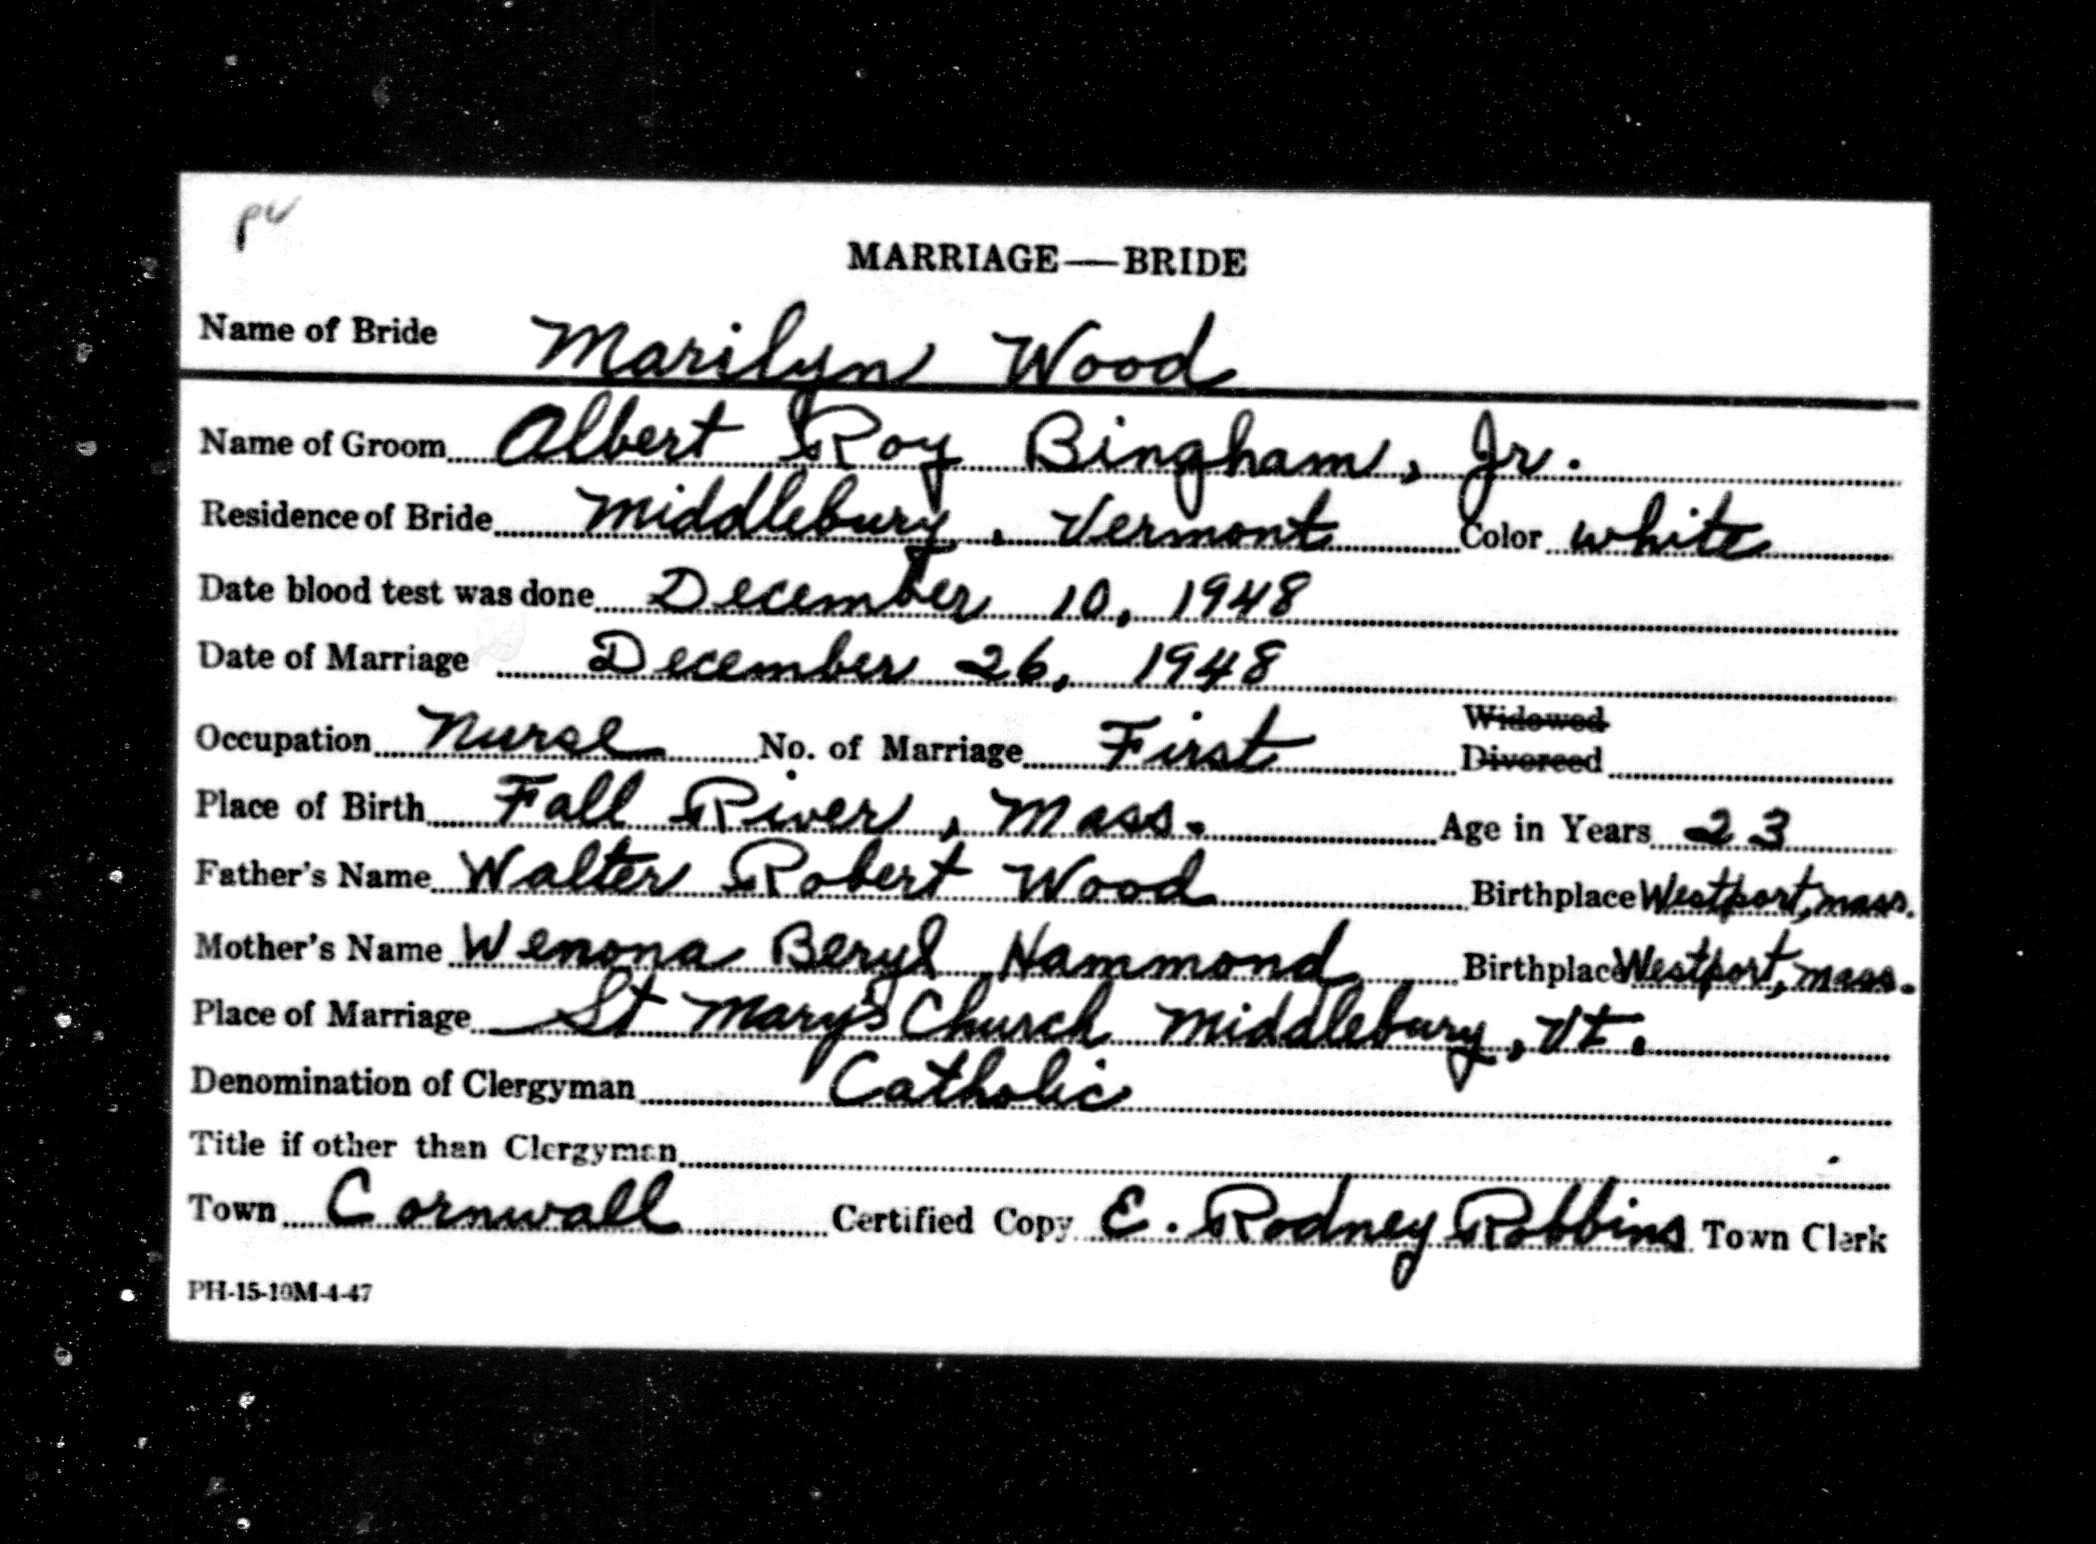 MARRIAGE—BRIDE
Name of Bride Marilyn Wood
Name of Groom Albert Roy Bingham, Jr.
Residence of Bride Middlebury, Vermont Color white
Date blood test was done December 10, 1948
Date of Marriage December 26, 1948
Occupation Nurse No. of Marriage First Widowed Divorced
Place of Birth Fall River, Mass. Age in Years 23
Father's Name Walter Robert Wood Birthplace Westport, Mass.
Mother's Name Wenona Beryl Hammond Birthplace Westport, Mass.
Place of Marriage St Mary's Church Middlebury, Vt.
Denomination of Clergyman Catholic
Title if other than Clergyman
Town Cornwall Certified Copy E. Rodney Robbins Town Clerk
PH-15-10M-4-47